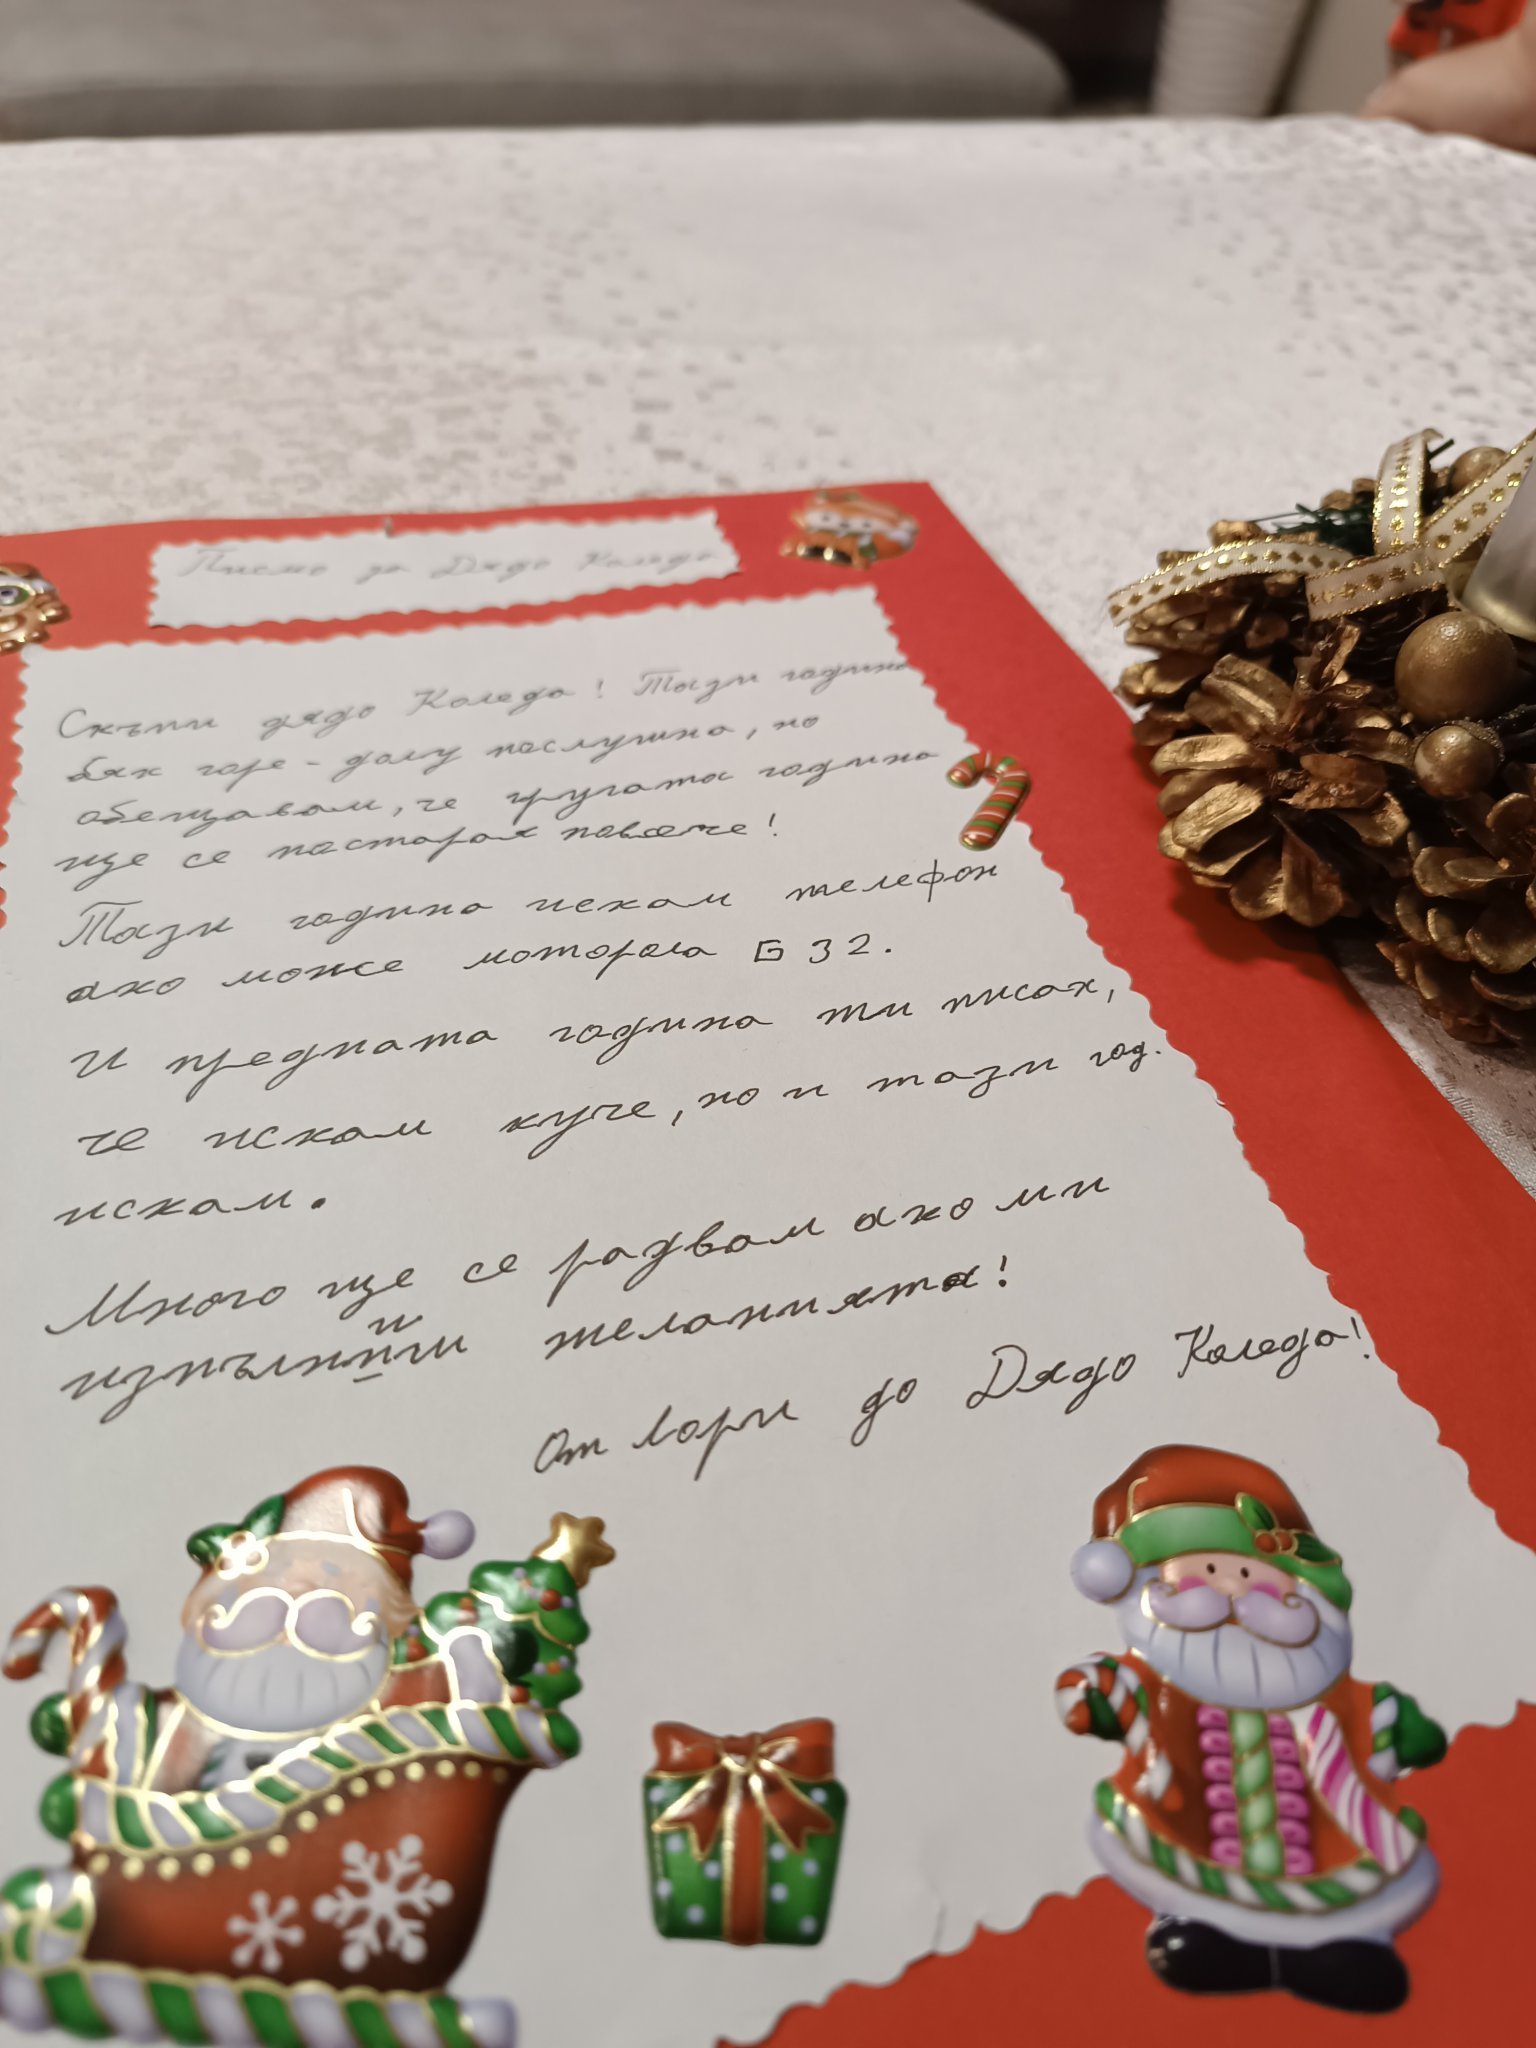 Писмо за Дядо Коледа
Скъпи дядо Коледа! Тази година
бях горе-долу послушна, но
обещавам, че другата година
ще се постарая повече!
Тази година искам телефон
ако може моторола G 32.
И предната година ти писах,
че искам куче, но и тази год.
искам.
Много ще се радвам ако ми
изпълниш желанията!
От Лори до Дядо Коледа!